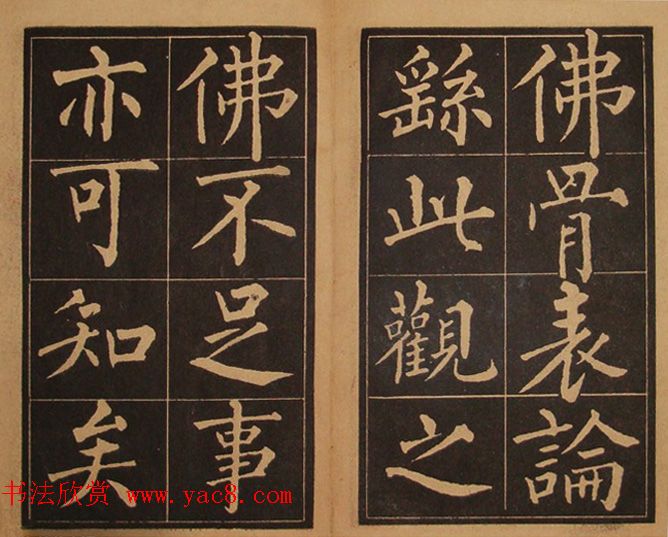 佛骨表論
繇此觀之
佛不足事
亦可知矣
书法欣赏 www.yac8.com